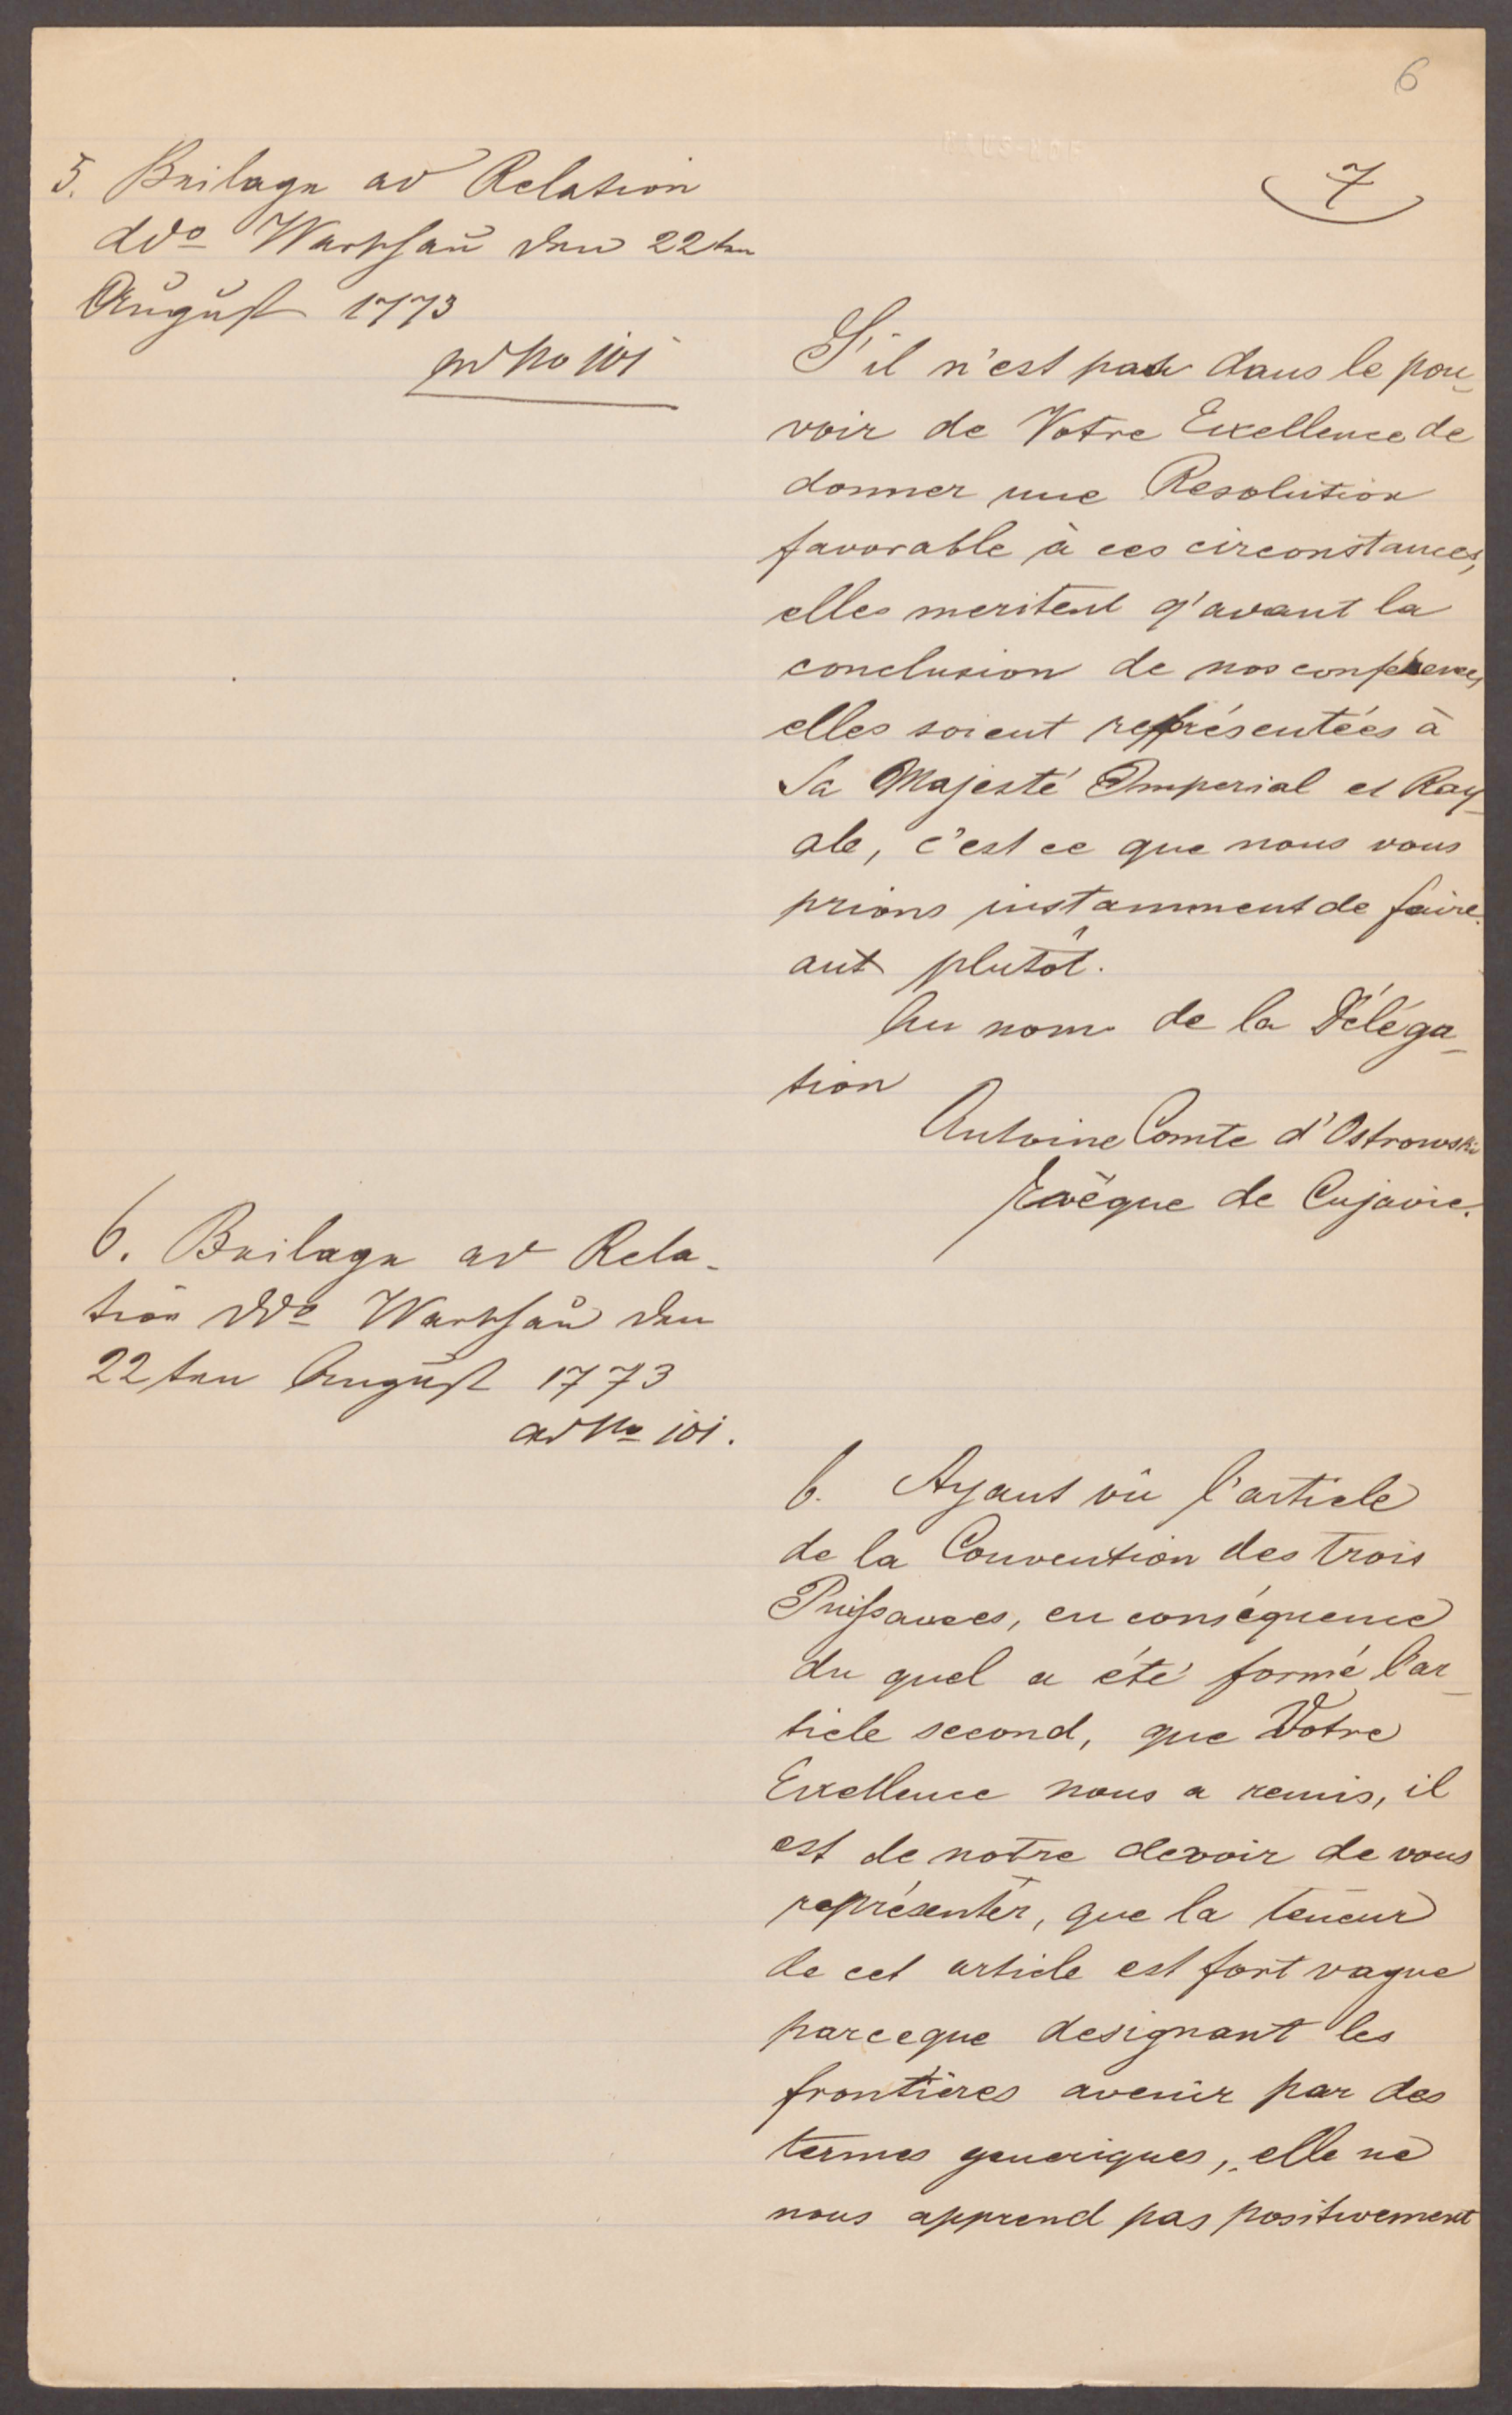 6
7
5. Beilage ad Relation
ddo Warschau den 22ten
August 1773
ad No 101
S'il n'est pas dans le pou-
voir de Votre Exellence de
donner une Resolution
favorable à ces circonstances,
elles meritent q'avant la
conclusion de nos conférences,
elles soient représentées à
Sa Majesté Imperial et Roy-
ale, c'est ce que nous vous
prions instamment de faire
aut plutôt.
Au nom de la Déléga-
tion
Antoine Comte d'Ostrowski
Evêque de Cujavie.
6. Beilage ad Rela-
tion ddo Warschau den
22ten August 1773
ad No 101.
6. Ayant vû l'article
de la Convention des trois
Puissances, en conséquence
du quel a été formé l'ar-
ticle second, que Votre
Exellence nous a remis, il
est de notre devoir de vous
représenter, que la teneur
de cet article est fort vague
parceque designant les
frontières avenir par des
termes generiques, elle ne
nous apprend pas positivement